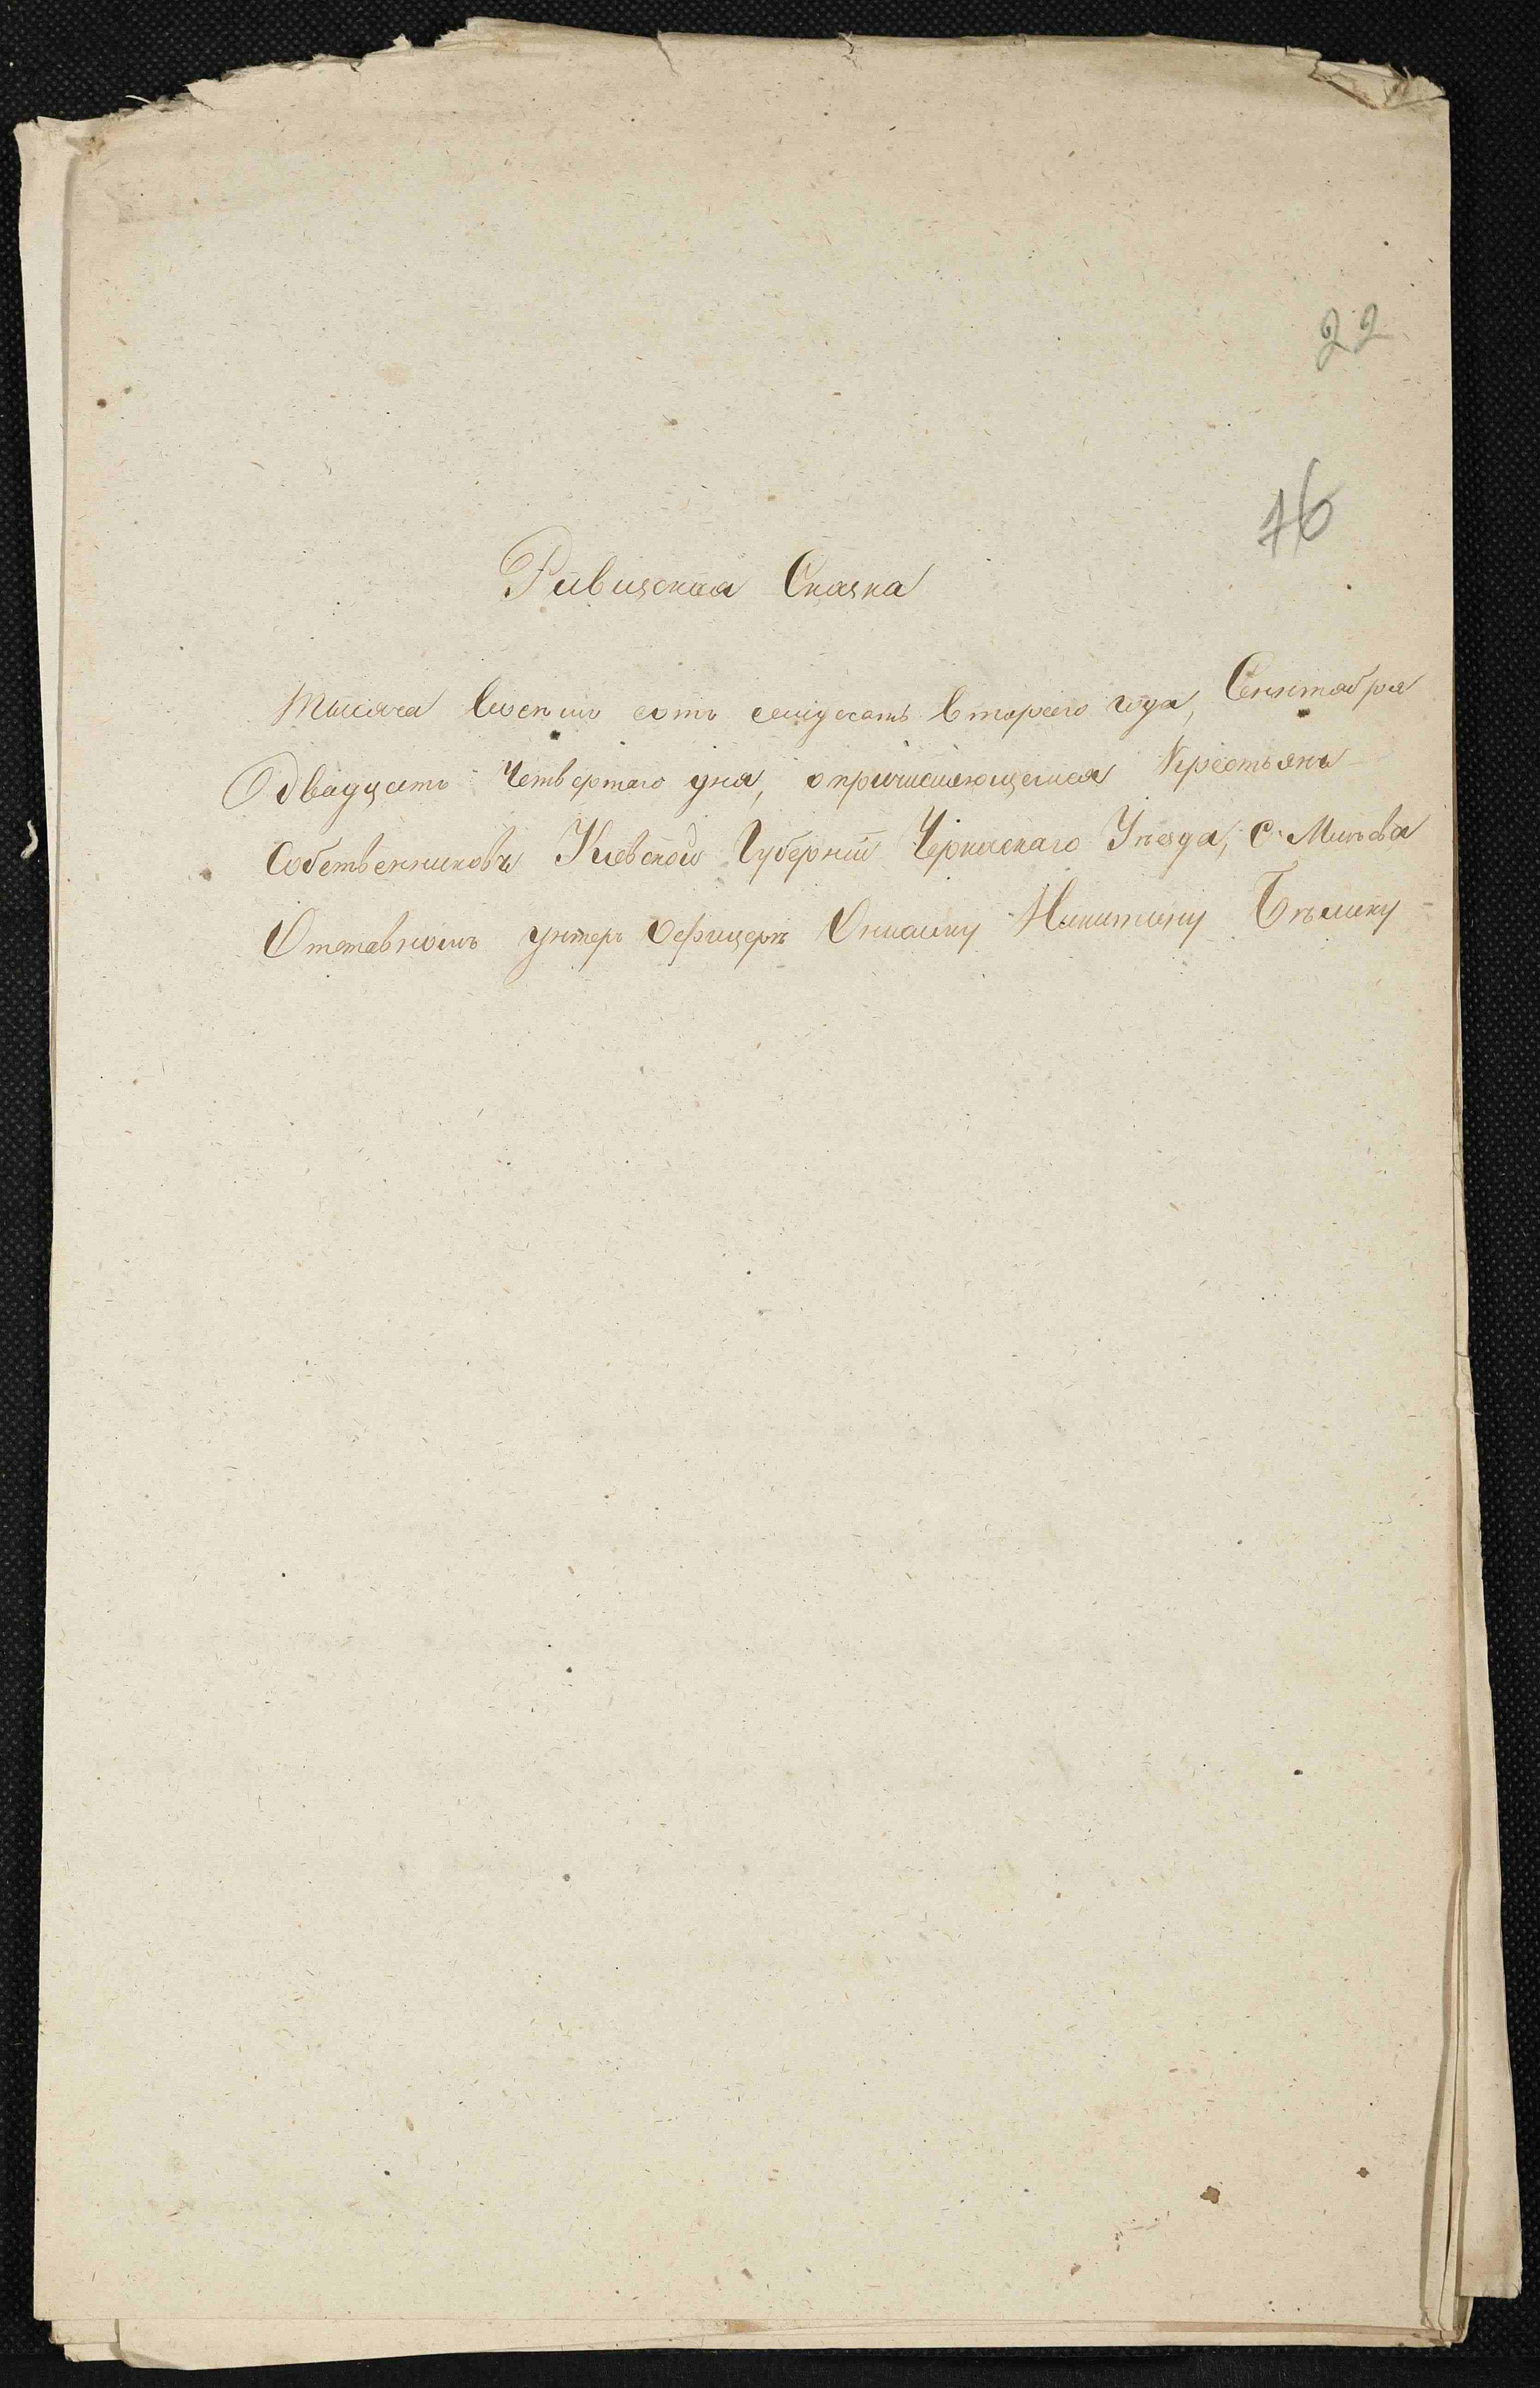 22
16
Ривизская Сказка
Тысяча восемь сотъ семдесатъ втораго года, Сентабра
Двадцать Четвертаго дня, о причисляющемся Крестьянъ
Собственниковъ Киевской Губерніи Черкаскаго Уѣзда, с. Мліева
Отставномъ унтеръ Офицеръ Никитину Бѣлику